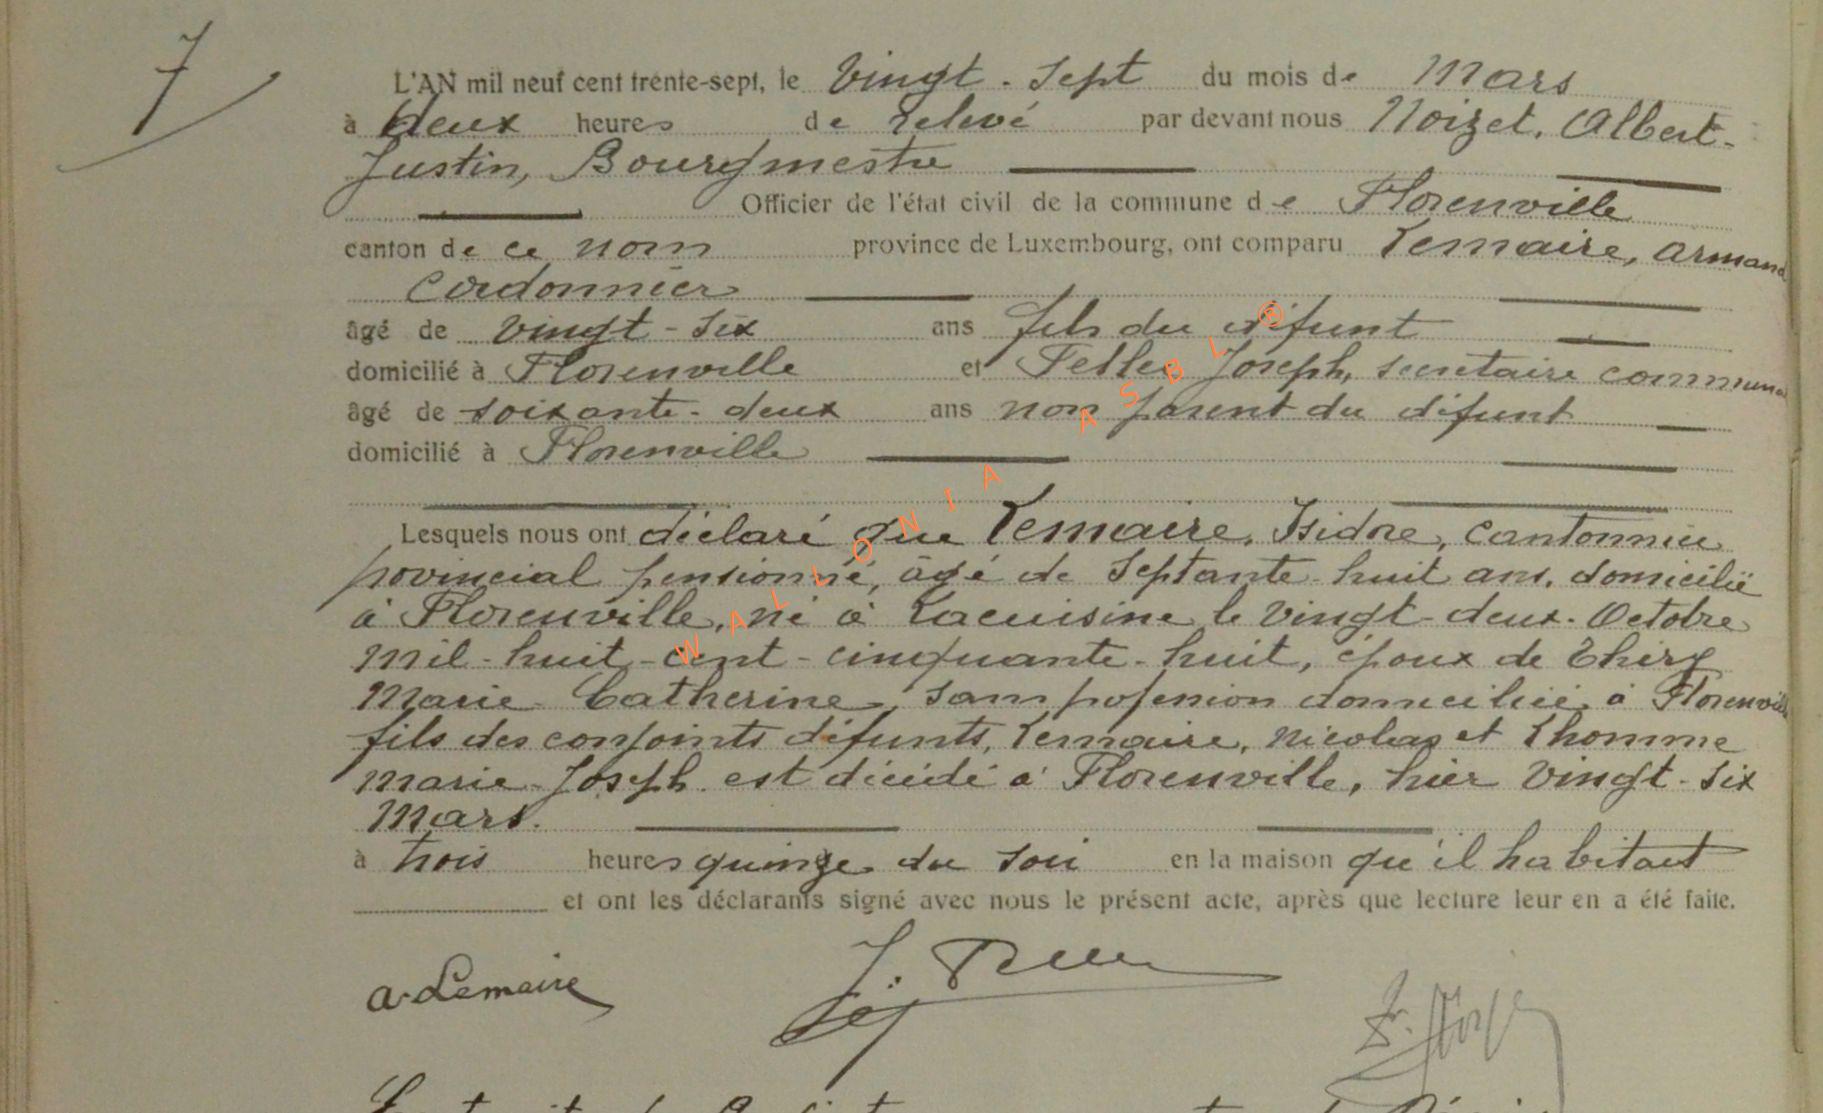 7
L'AN mil neuf cent trente-sept, le Vingt-Sept du mois de Mars
à deux heures de relevé par devant nous Noizet, Albert-
Justin, Bourgmestre
Officier de l'état civil de la commune de Florenville
canton de ce nom province de Luxembourg, ont comparu Lemaire, Armand
Cordonnier
âgé de vingt-six ans fils du défunt
domicilié à Florenville et Joseph, secrétaire communal
âgé de soixante-deux ans non parent du défunt
domicilié à Florenville
Lesquels nous ont déclaré que Lemaire, Isidore, cantonnier
provincial pensionné, âgé de Septante-huit ans, domicilié
à Florenville, né à Lacuisine le Vingt-deux-Octobre
mil-huit-cent-cinquante-huit, époux de Thiry
Marie-Catherine, sans profession domiciliée à Florenville
fils des conjoints défunts, Lemaire, Nicolas et Lhomme
Marie-Joseph est décédé à Florenville, hier Vingt-Six
Mars.
à trois heures quinze du soir en la maison qu'il habitait
et ont les déclarants signé avec nous le présent acte, après que lecture leur en a été faite.
A. Lemaire
WALLONIA ASBL ®